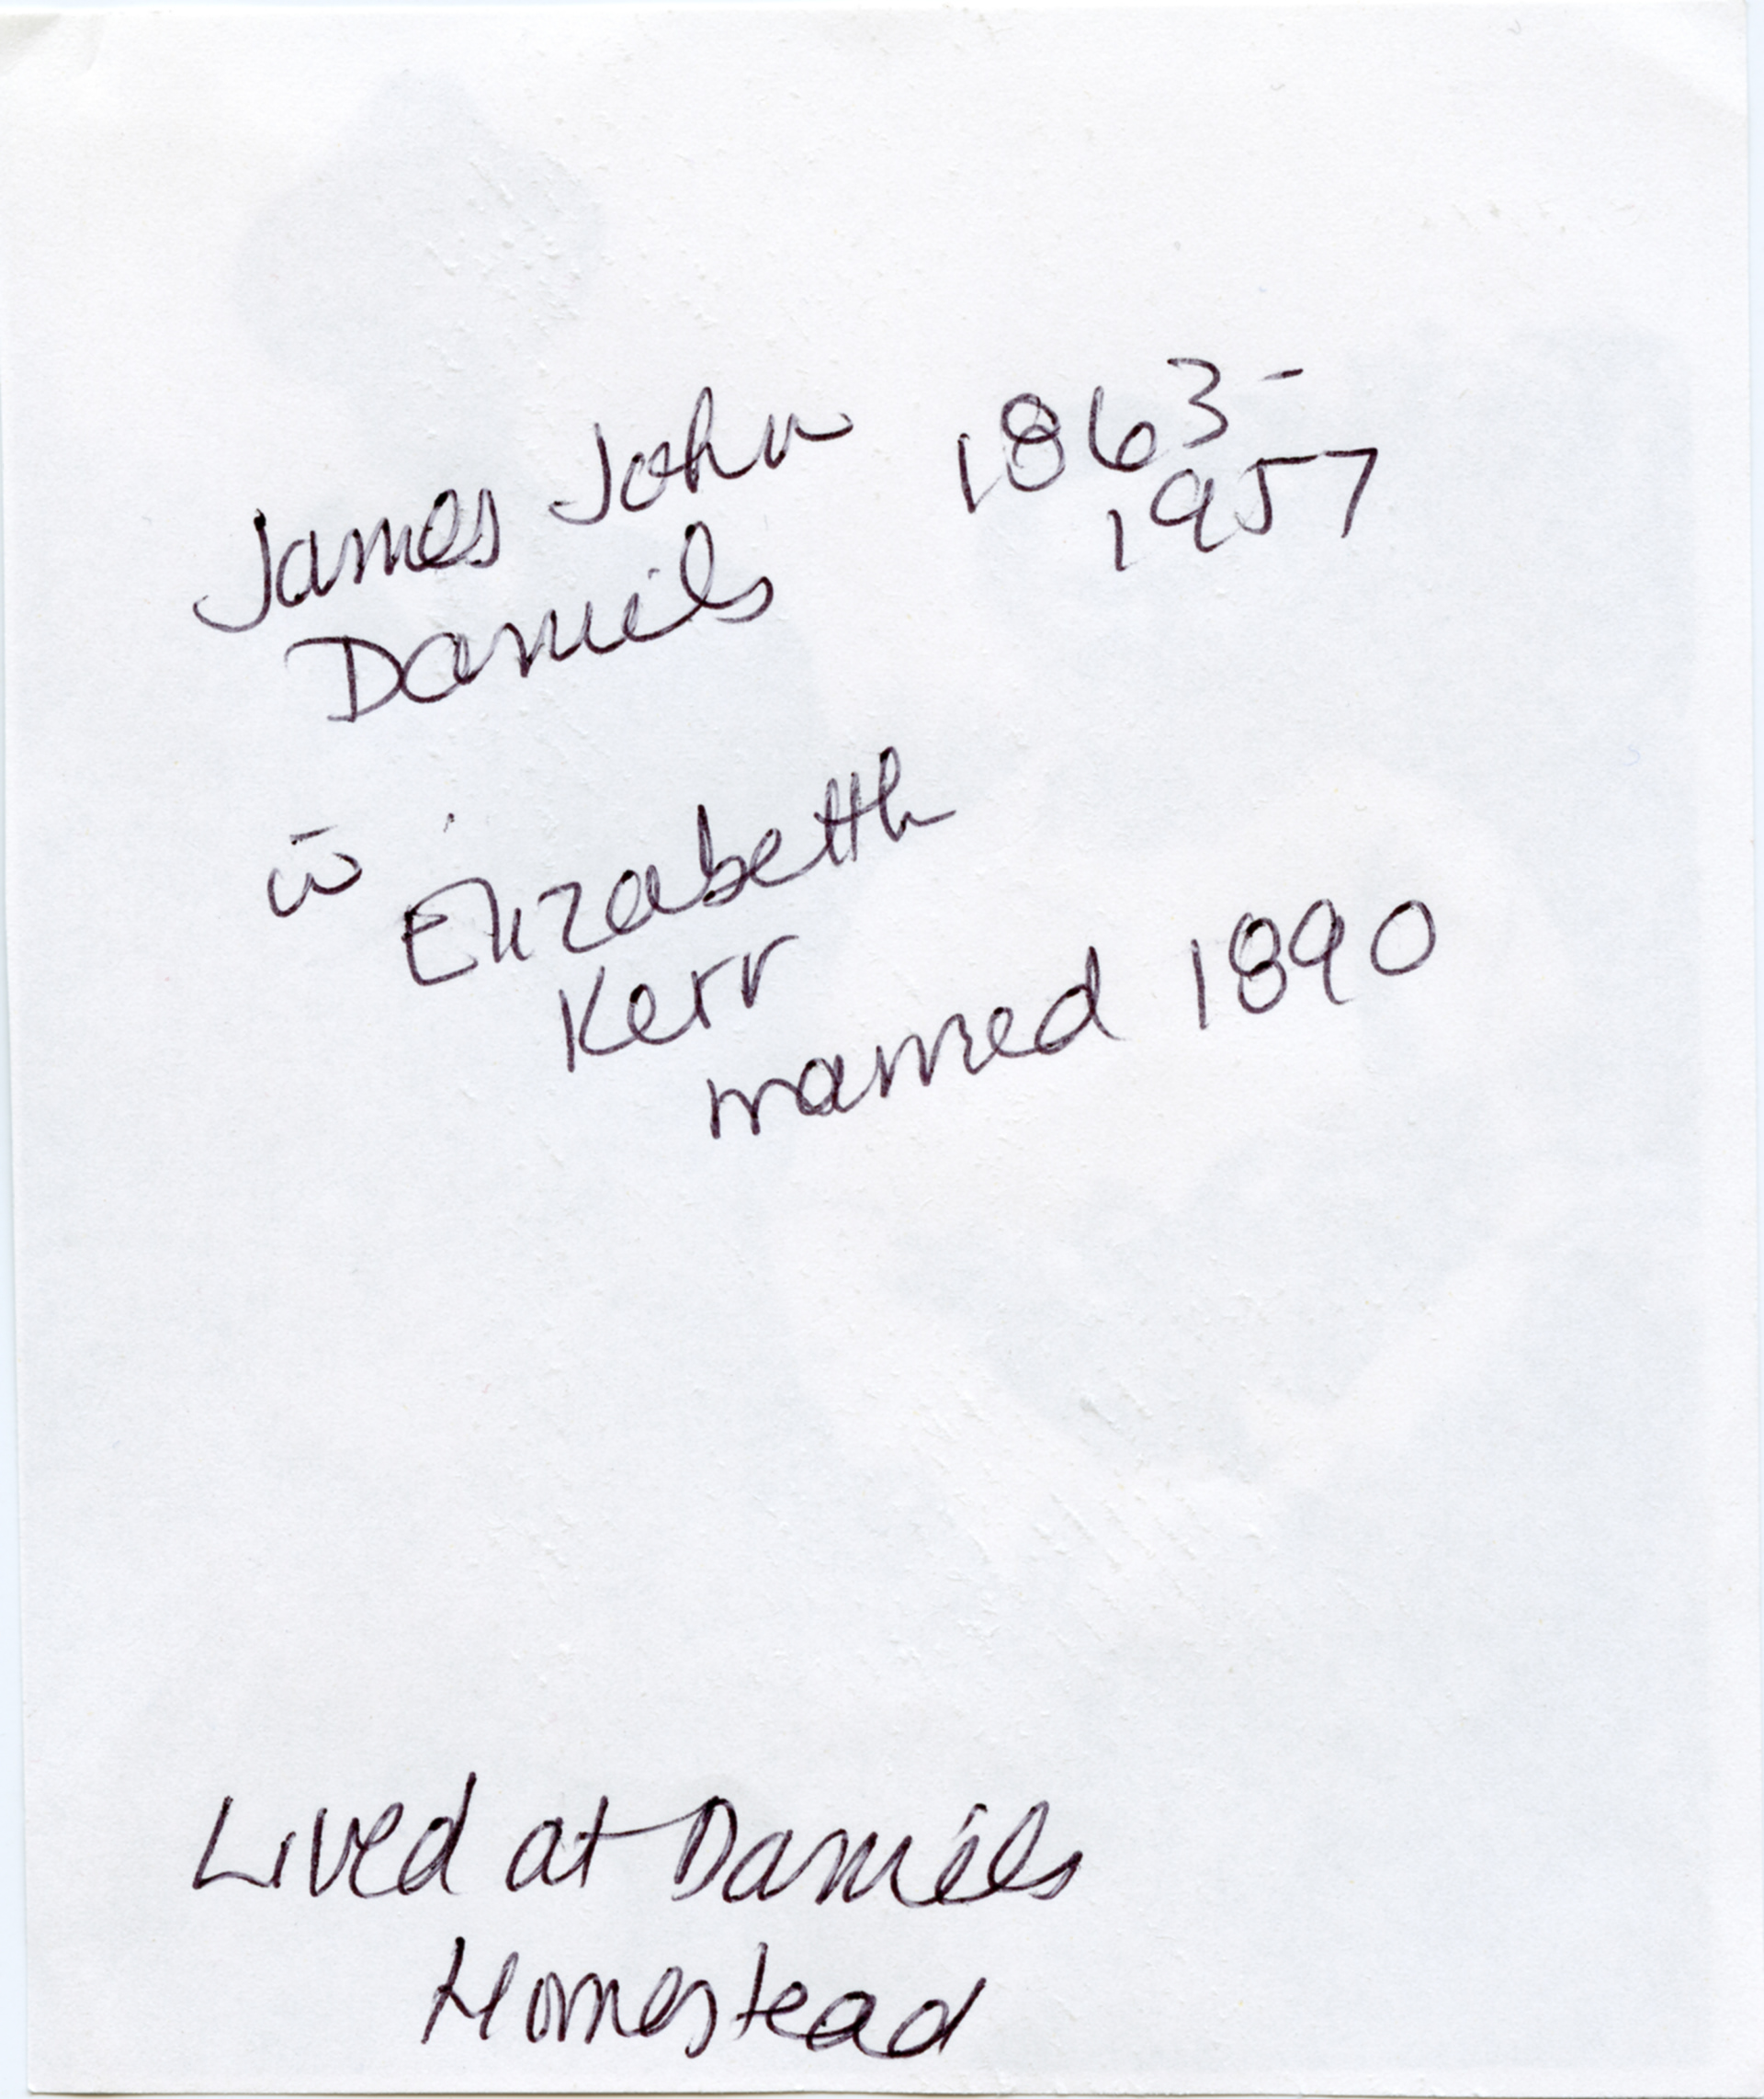 James John 1863-
Daniels 1957
w̄ Elizabeth
Kerr
married 1890
Lived at Daniels
Homestead